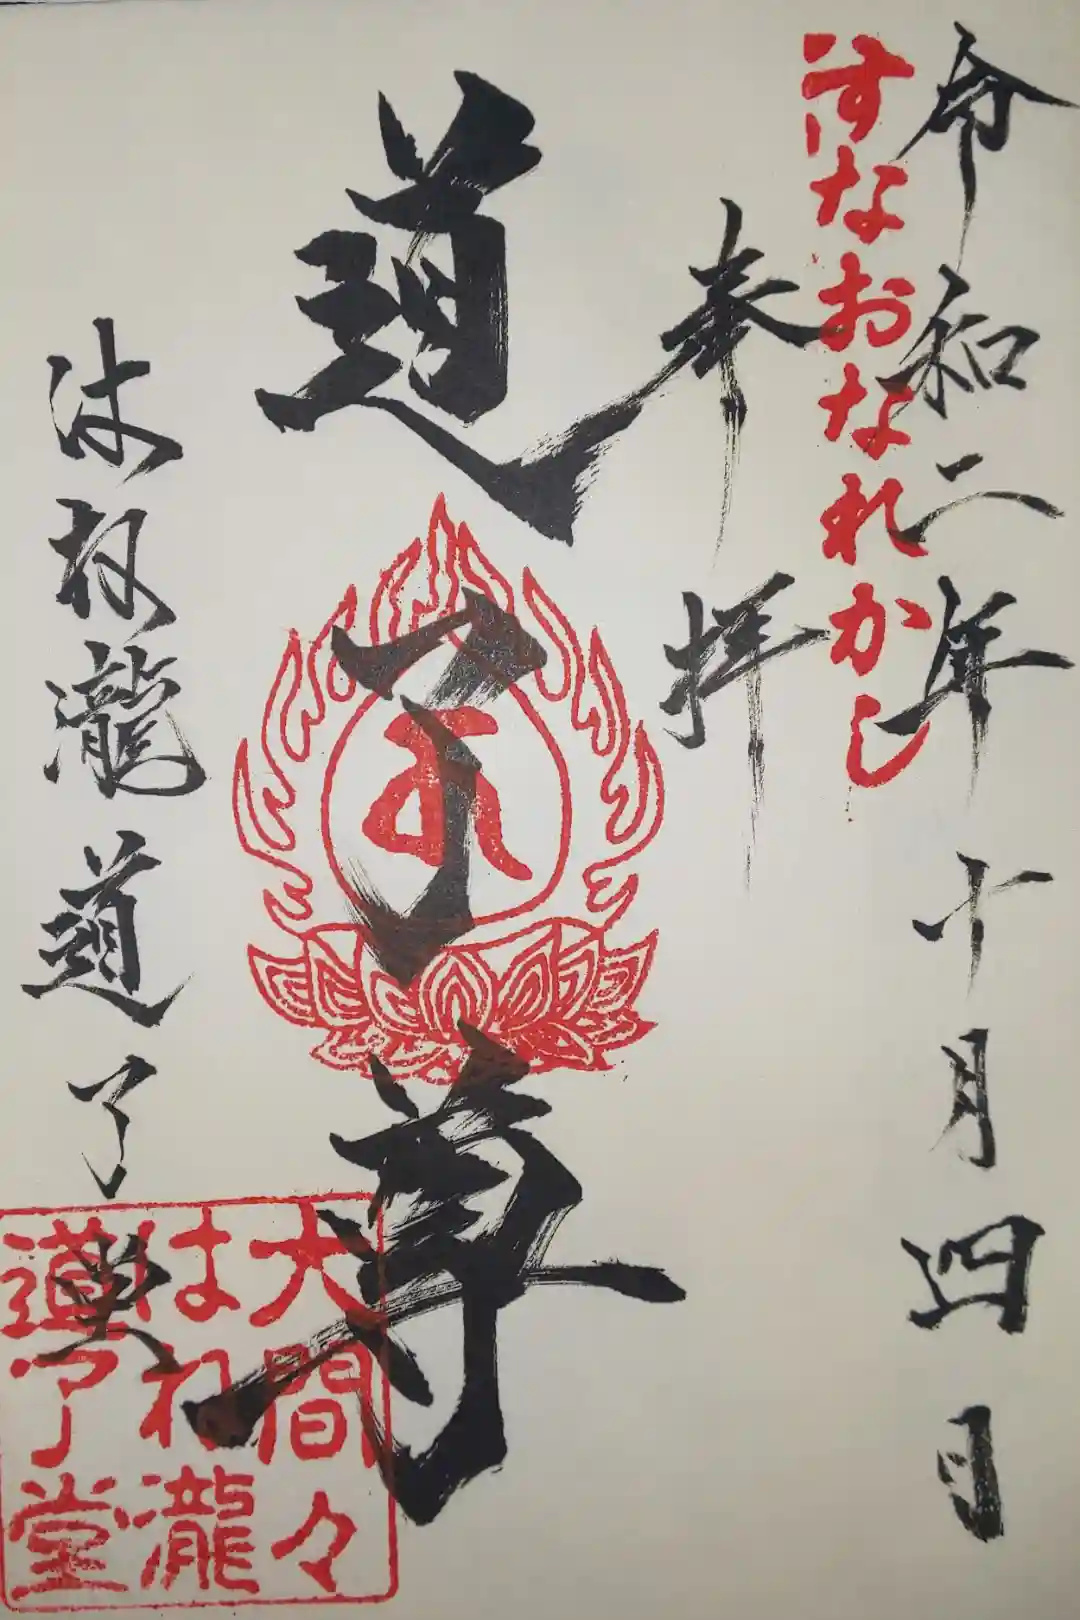 令和二年十月四日
すなおなれかし
奉拝
道了尊
瀧道了堂
大間々
はね瀧
道了堂